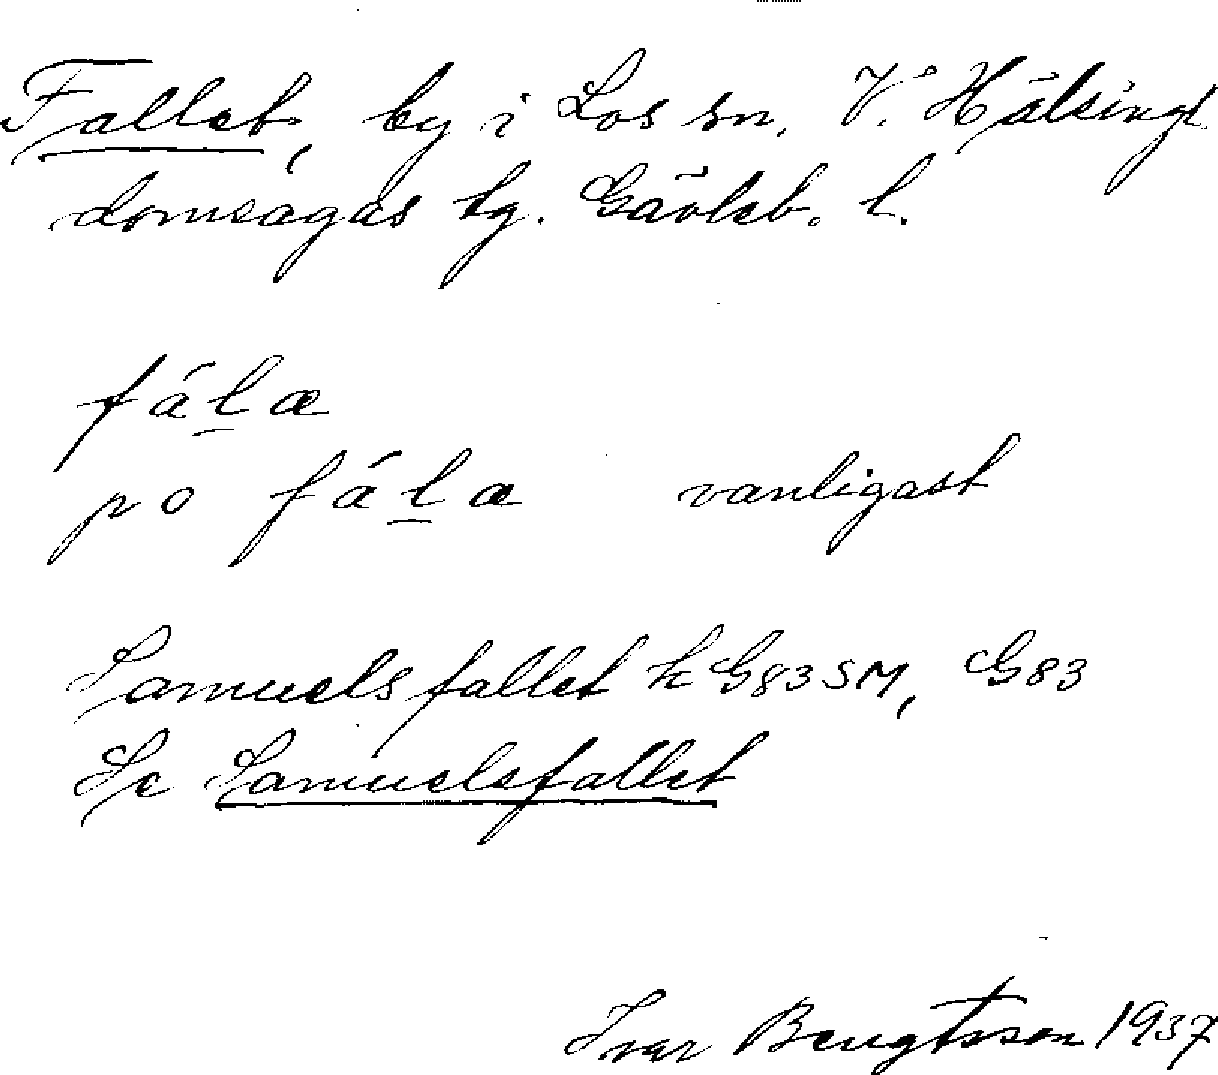 Fallet, by i Los sn, V. Hälsingl.
domsagas tg. Gävleb. l.
fál̲æ
po fál̲a vanligast
Samuelsfallet k G83SM, G83
Se Samuelsfallet
Ivar Bengtsson 1937